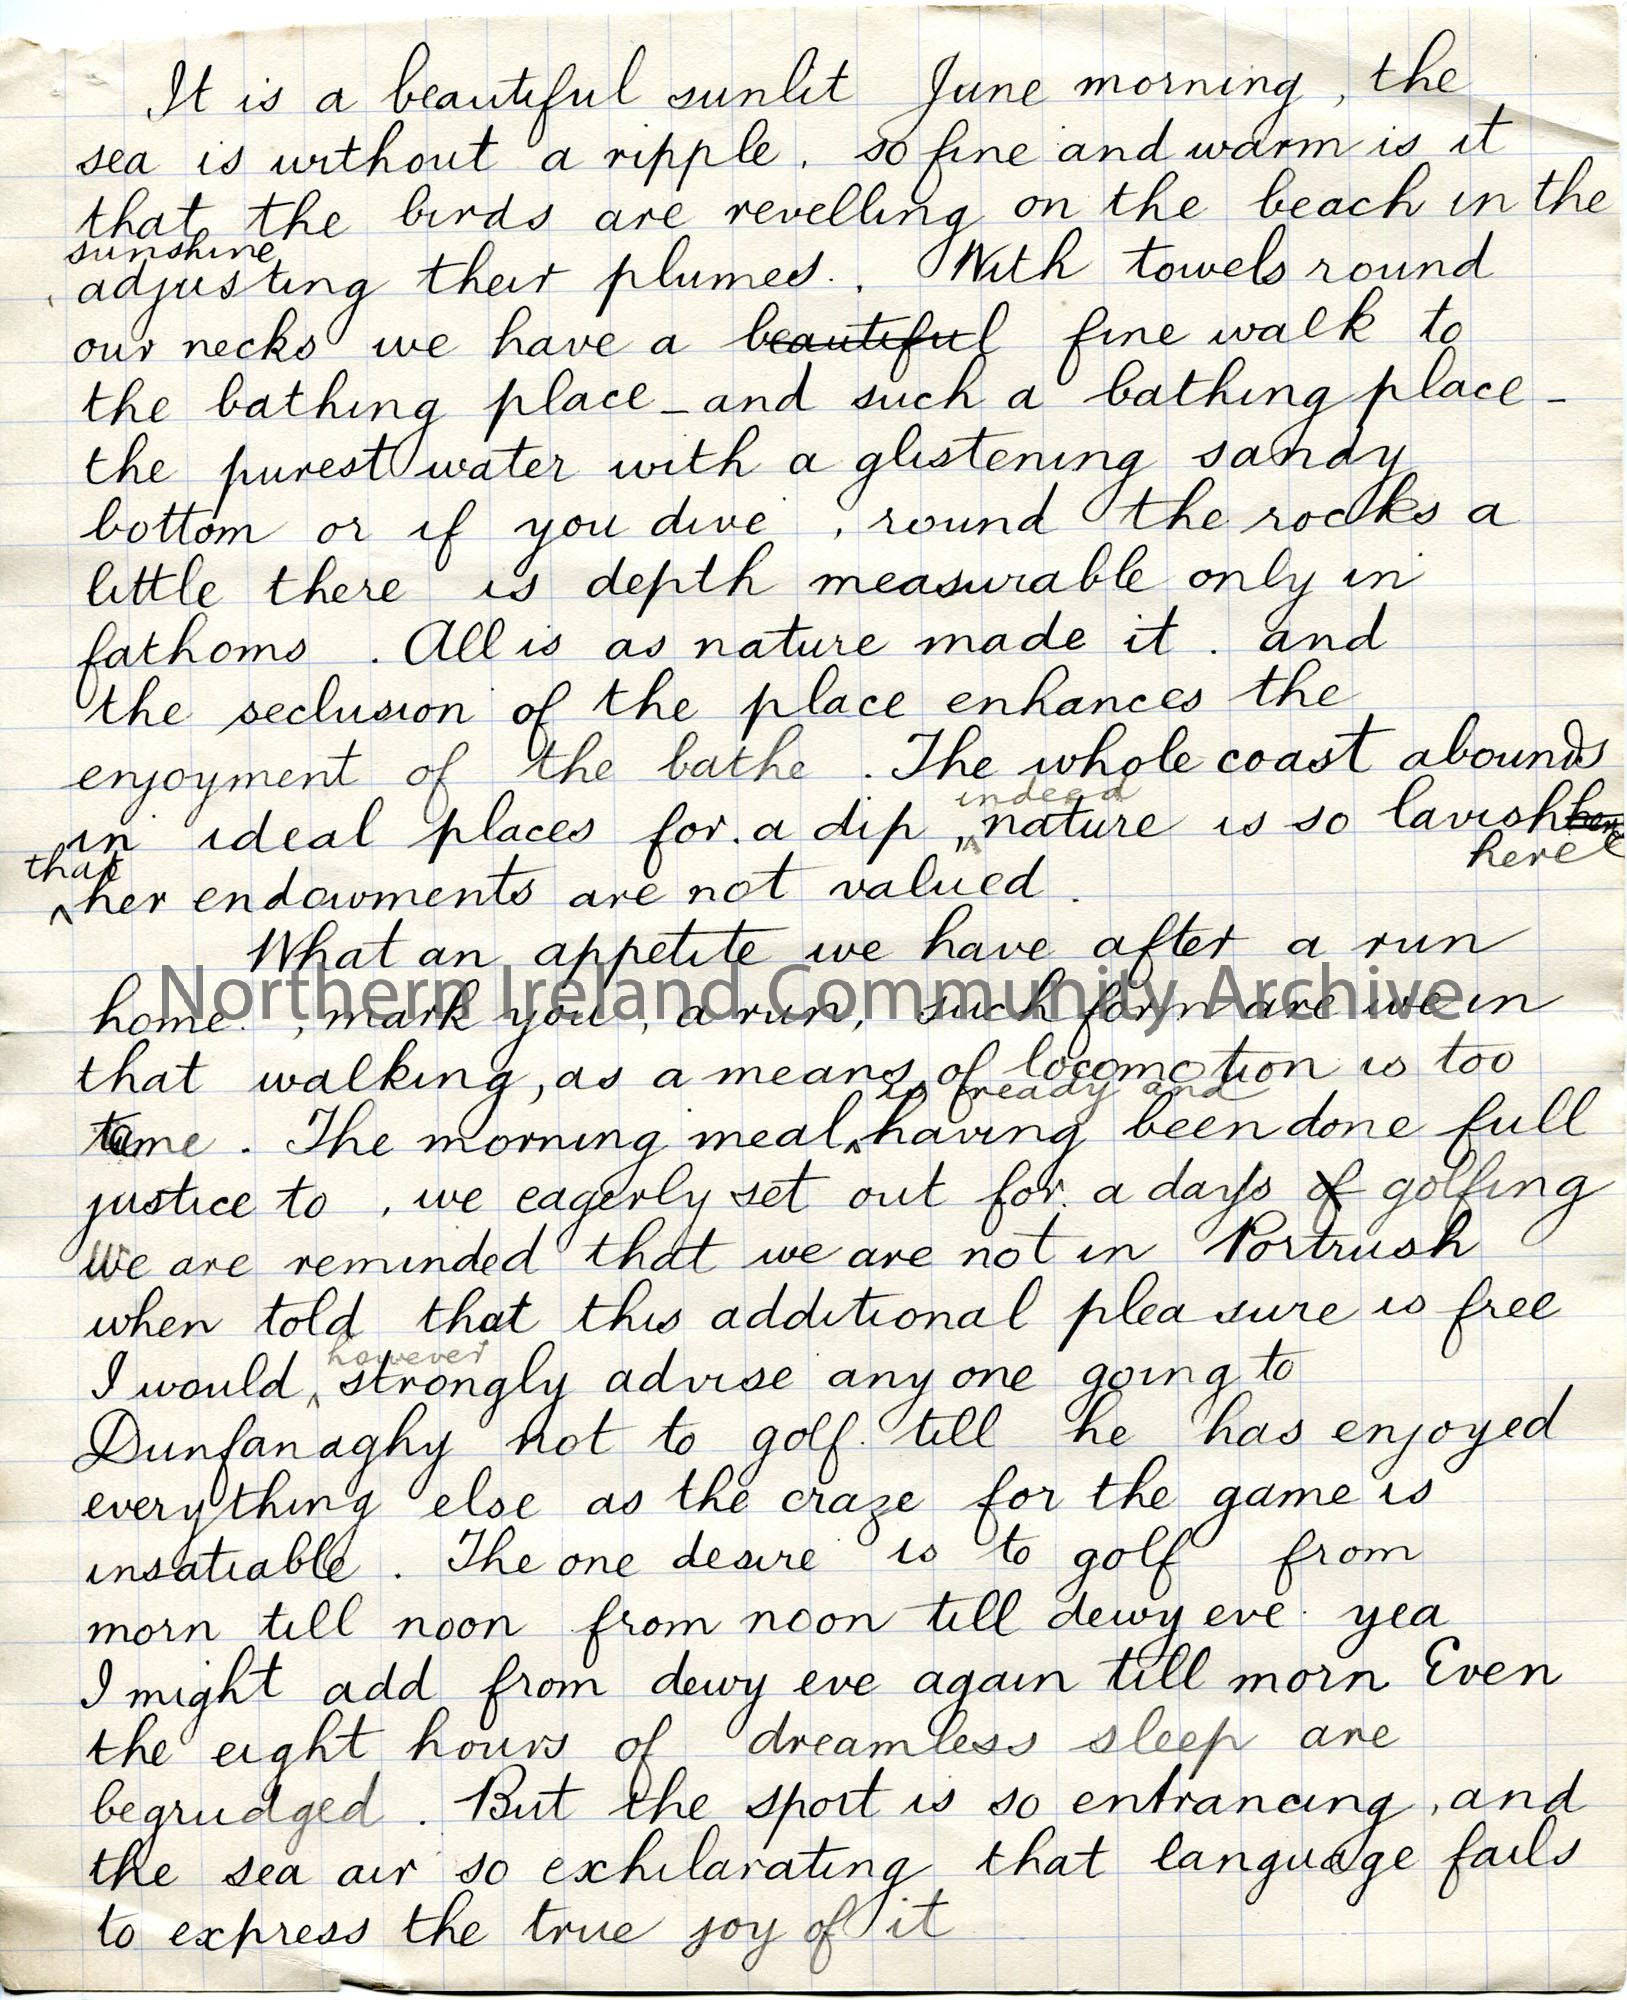 It is a beautiful sunlit June morning, the
sea is without a ripple. so fine and warm is it
that the birds are revelling on the beach in the
sunshine
adjusting their plumes.. With towels round
our necks we have a beautiful fine walk to
the bathing place - and such a bathing place -
the purest water with a glistening sandy
bottom or if you dive , round the rocks a
little there is depth measurable only in
fathoms . All is as nature made it . and
the seclusion of the place enhances the
enjoyment of the bathe . The whole coast abounds
indeed
in ideal places for a dip , nature is so lavish here
here
that
her endowments are not valued .
What an appetite we have after a run
home , mark you , a run, such form are we in
Northern Ireland Community Archive
that walking, as a means of locomotion is too
is ready and
tame . The morning meal having been done full
justice to , we eagerly set out for a days of golfing
We are reminded that we are not in Portrush
when told that this additional pleasure is free
however
I would, strongly advise any one going to
Dunfanaghy not to golf till he has enjoyed
everything else as the craze for the game is
insatiable . The one desire is to golf from
morn till noon from noon till dewy eve yea
I might add from dewy eve again till morn Even
the eight hours of dreamless sleep are
begrudged . But the sport is so entrancing , and
the sea air so exhilarating that language fails
to express the true joy of it